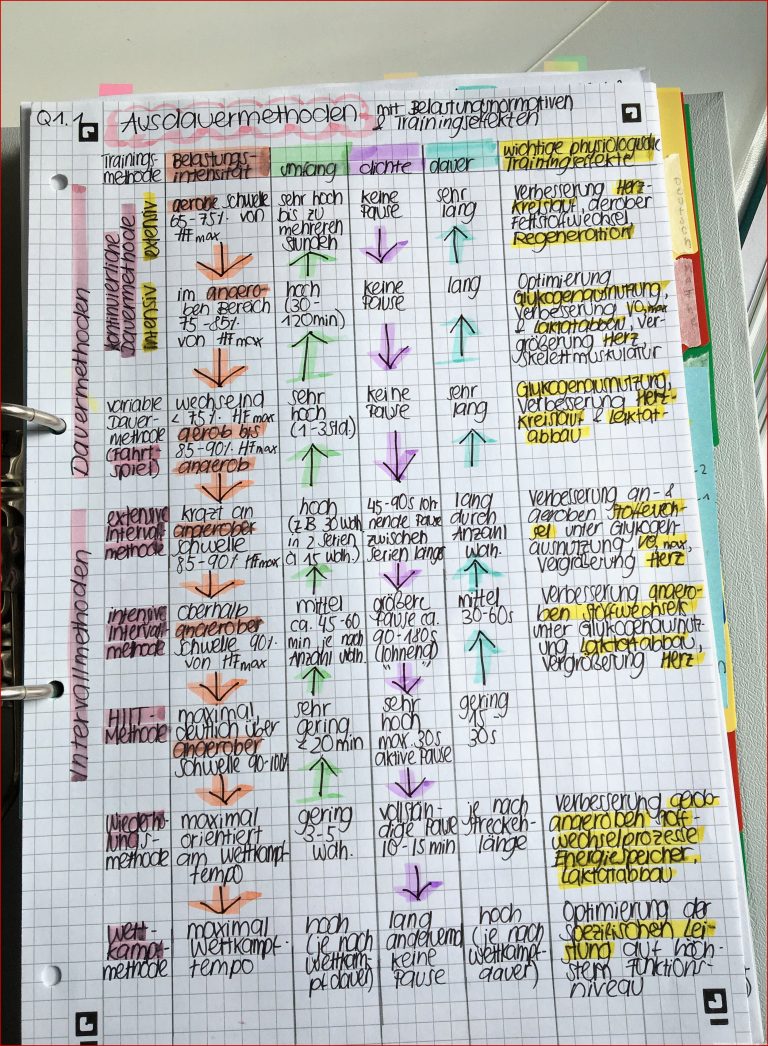 Q1.1
Ausdauermethoden mit Belastungsnormativen
& Trainingseffekten
Trainings-
methode
Belastungs-
intensität
umfang
dichte
dauer
wichtige physiologische
Trainingseffekte
Dauermethoden
kontinuierliche
Dauermethode
extensiv
aerobe Schwelle
65-75% von
HFmax
sehr hoch
bis zu
mehreren
Stunden
keine
Pause
sehr
lang
Verbesserung Herz-
kreislauf, aerober
Fettstoffwechsel,
Regeneration
intensiv
im anaero-
ben Bereich
75-85%
von HFmax
hoch
(30-
120min)
keine
Pause
lang
Optimierung
Glukogenausnutzung,
Verbesserung VO₂max
& Laktatabbau, Ver-
größerung Herz,
Skelettmuskulatur
variable
Dauer-
methode
(Fahrt-
spiel)
wechselnd
< 75% HFmax
aerob bis
85-90% HFmax
anaerob
sehr
hoch
(1-3Std.)
keine
Pause
sehr
lang
Glukogenausnutzung,
Verbesserung Herz-
kreislauf & Laktat-
abbau
Intervallmethoden
extensive
Interval-
methode
kratzt an
anaerober
Schwelle
85-90% HFmax
hoch
(z.B 30 Wdh
in 2 Serien
à 15 Wdh.)
45-90s loh-
nende Pause
zwischen
Serien länger
lang
durch
Anzahl
Wdh.
Verbesserung an- &
aeroben Stoffwech-
sel unter Glykogen-
ausnutzung, VO₂max,
Vergrößerung Herz
intensive
Interval-
methode
oberhalb
anaerober
Schwelle 90%
von HFmax
mittel
ca. 45-60
min je nach
Anzahl Wdh.
größere
Pause ca.
90-180s
(lohnend)
mittel
30-60s
Verbesserung anaero-
ben Stoffwechsel
unter Glukogenausnutz-
ung, Laktatabbau,
Vergrößerung Herz
HIIT-
Methode
maximal,
deutlich über
anaerober
Schwelle 90-100%
sehr
gering
≤ 20 min
sehr
hoch
max. 30s
aktive Pause
gering
15-
30s
Wiederho-
lungs-
methode
maximal
orientiert
am Wettkampf-
tempo
gering
3-5
Wdh.
vollstän-
dige Pause
10-15min
je nach
Strecken-
länge
Verbesserung aerob-
anaeroben Stoff-
wechselprozesse
Energiespeicher,
Laktatabbau
Wett-
kampf-
methode
maximal
Wettkampf-
tempo
hoch
(je nach
Wettkam-
pfdauer)
lang
andauernd
keine
Pause
hoch
(je nach
Wettkampf-
dauer)
Optimierung der
spezifischen Lei-
stung auf höch-
stem Funktions-
niveau